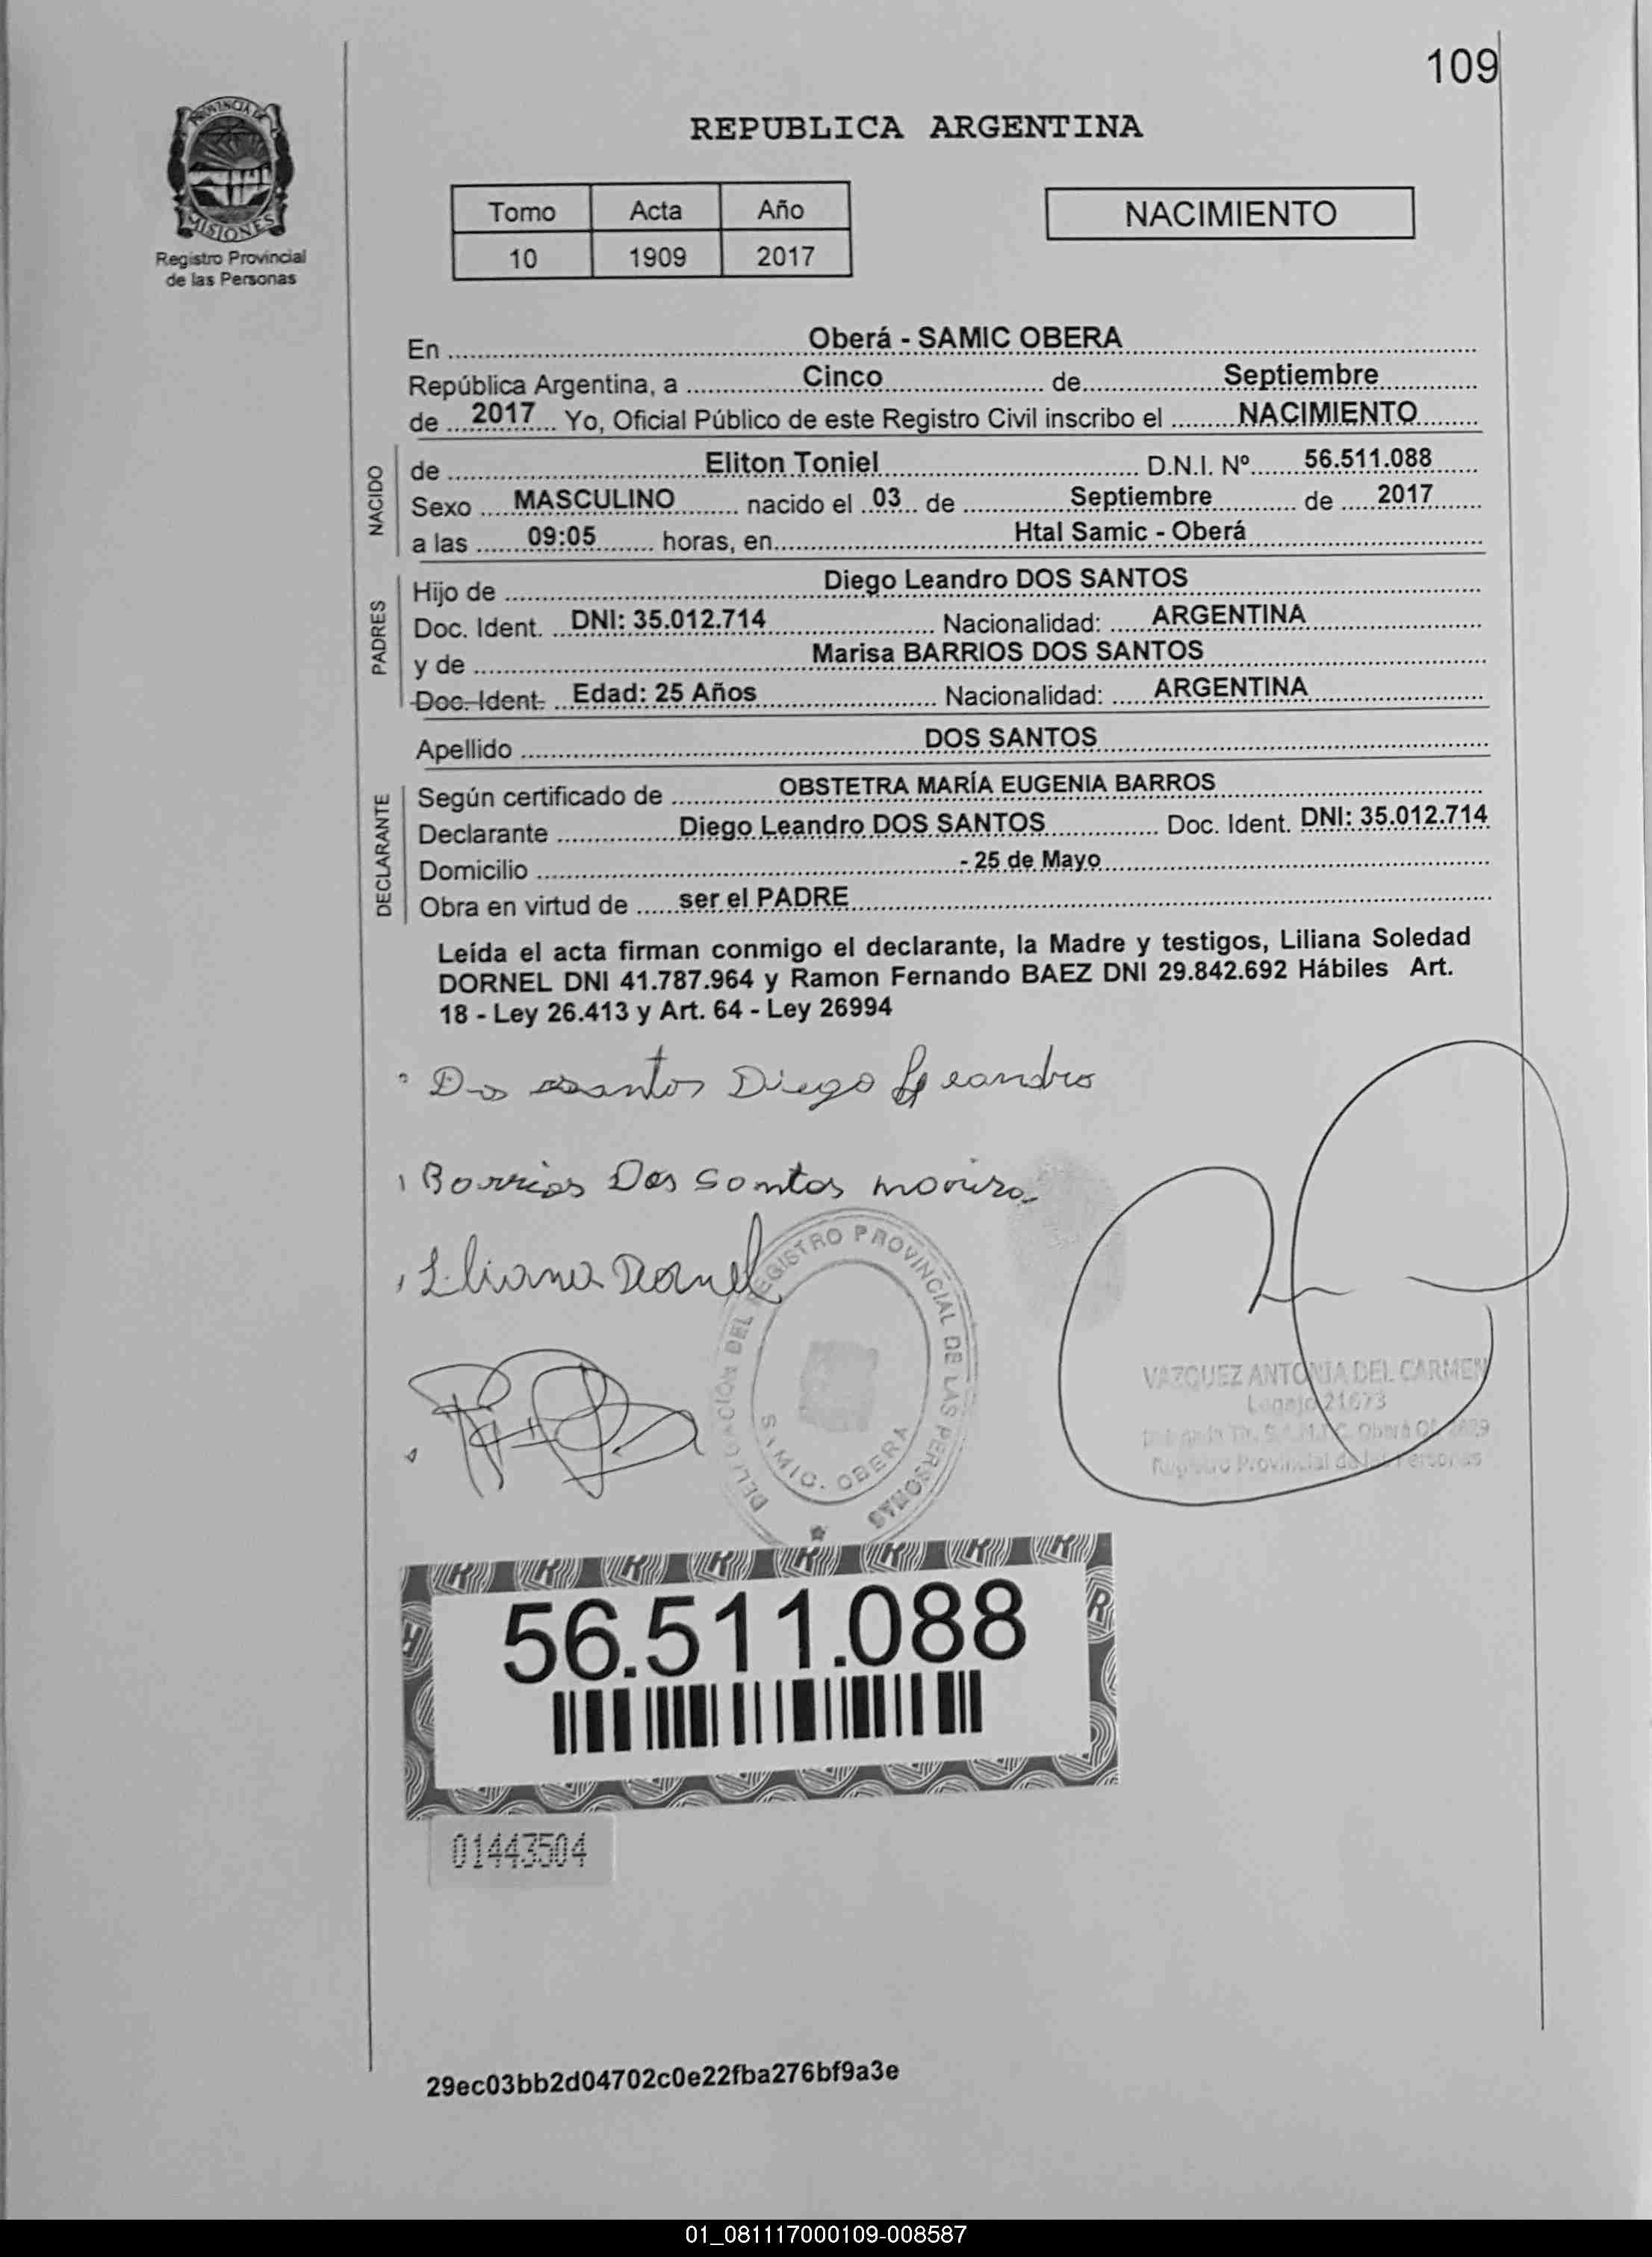 109
PROVINCIA DE
MISIONES
Registro Provincial
de las Personas
REPUBLICA ARGENTINA
Tomo Acta Año
10 1909 2017
NACIMIENTO
En Oberá - SAMIC OBERA
República Argentina, a Cinco de Septiembre
de 2017 Yo, Oficial Público de este Registro Civil inscribo el NACIMIENTO
NACIDO
de Eliton Toniel D.N.I. Nº 56.511.088
Sexo MASCULINO nacido el 03 de Septiembre de 2017
a las 09:05 horas, en Htal Samic - Oberá
PADRES
Hijo de Diego Leandro DOS SANTOS
Doc. Ident. DNI: 35.012.714 Nacionalidad: ARGENTINA
y de Marisa BARRIOS DOS SANTOS
Doc. Ident. Edad: 25 Años Nacionalidad: ARGENTINA
Apellido DOS SANTOS
DECLARANTE
Según certificado de OBSTETRA MARÍA EUGENIA BARROS
Declarante Diego Leandro DOS SANTOS Doc. Ident. DNI: 35.012.714
Domicilio - 25 de Mayo
Obra en virtud de ser el PADRE
Leída el acta firman conmigo el declarante, la Madre y testigos, Liliana Soledad
DORNEL DNI 41.787.964 y Ramon Fernando BAEZ DNI 29.842.692 Hábiles Art.
18 - Ley 26.413 y Art. 64 - Ley 26994
Dos santos Diego Leandro
Barrios Dos Santos marisa
Liliana Dornel
DELEGACION DEL REGISTRO PROVINCIAL DE LAS PERSONAS
SAMIC. OBERA
VAZQUEZ ANTONIA DEL CARMEN
Legajo 21673
Registro Provincial de las Personas
56.511.088
01443504
29ec03bb2d04702c0e22fba276bf9a3e
01_081117000109-008587